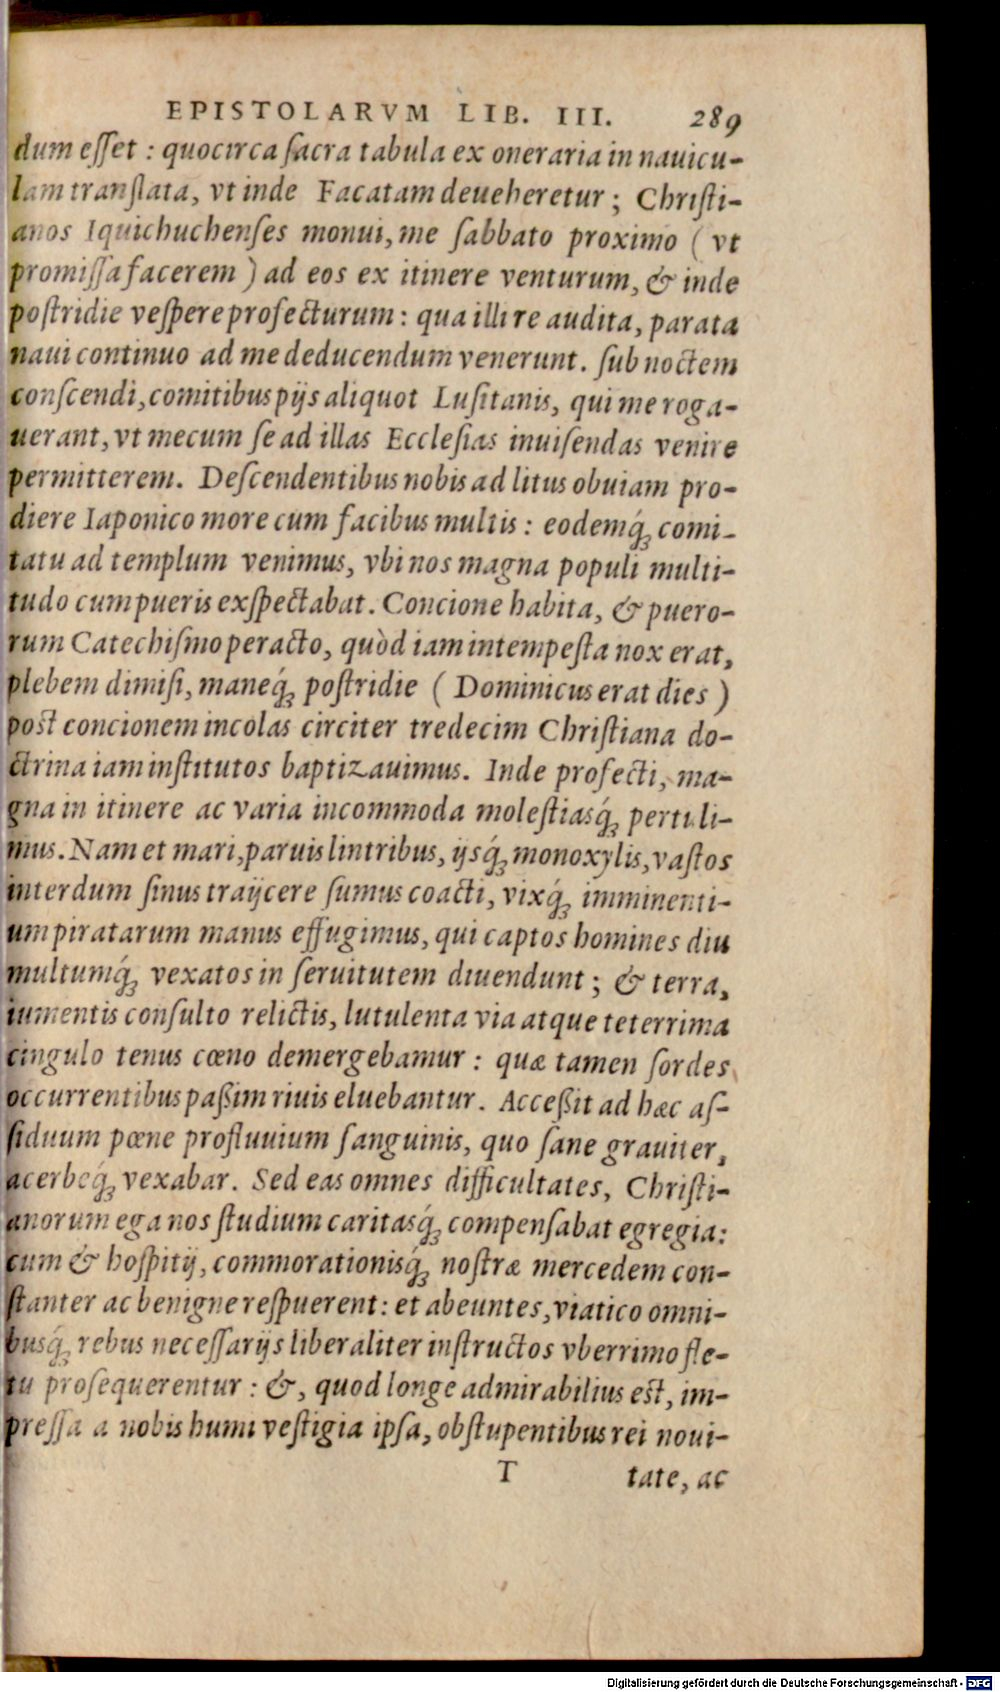 EPISTOLARVM LIB. III. 289
dum esset : quocirca sacra tabula ex oneraria in nauicu-
lam translata, vt inde Facatam deueheretur ; Christi-
anos Iquichuchenses monui, me sabbato proximo ( vt
promissa facerem ) ad eos ex itinere venturum, & inde
postridie vespere profecturum : qua illi re audita, parata
naui continuo ad me deducendum venerunt. sub noctem
conscendi, comitibus pijs aliquot Lusitanis, qui me roga-
uerant, vt mecum se ad illas Ecclesias inuisendas venire
permitterem. Descendentibus nobis ad litus obuiam pro-
diere Iaponico more cum facibus multis : eodemq́; comi-
tatu ad templum venimus, vbi nos magna populi multi-
tudo cum pueris exspectabat. Concione habita, & puero-
rum Catechismo peracto, quòd iam intempesta nox erat,
plebem dimisi, maneq́; postridie ( Dominicus erat dies )
post concionem incolas circiter tredecim Christiana do-
ctrina iam institutos baptizauimus. Inde profecti, ma-
gna in itinere ac varia incommoda molestiasq́; pertuli-
mus. Nam et mari, paruis lintribus, ijsq́; monoxylis, vastos
interdum sinus traijcere sumus coacti, vixq́; imminenti-
um piratarum manus effugimus, qui captos homines diu
multumq́; vexatos in seruitutem diuendunt ; & terra,
iumentis consulto relictis, lutulenta via atque teterrima
cingulo tenus cœno demergebamur : quæ tamen sordes
occurrentibus paßim riuis eluebantur. Acceßit ad hæc as-
siduum pœne profluuium sanguinis, quo sane grauiter,
acerbeq́; vexabar. Sed eas omnes difficultates, Christi-
anorum ega nos studium caritasq́; compensabat egregia:
cum & hospitij, commorationisq́; nostræ mercedem con-
stanter ac benigne respuerent : et abeuntes, viatico omni-
busq́; rebus necessarijs liberaliter instructos vberrimo fle-
tu prosequerentur : &, quod longe admirabilius est, im-
pressa a nobis humi vestigia ipsa, obstupentibus rei noui-
T tate, ac
Digitalisierung gefördert durch die Deutsche Forschungsgemeinschaft - DFG